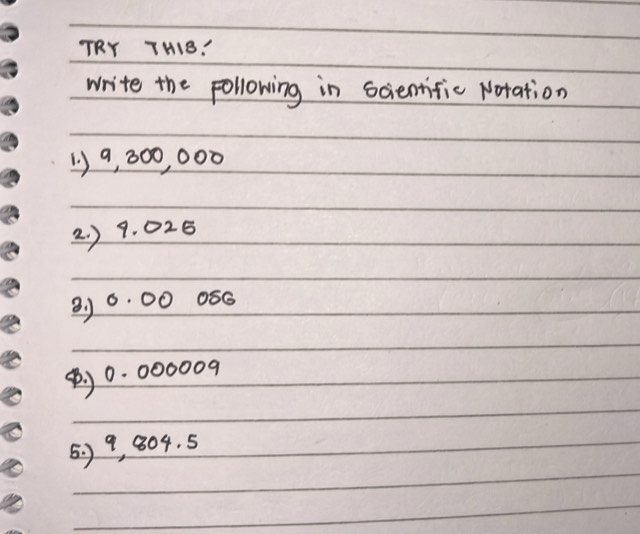 TRY THIS!
Write the following in Scientific Notation
1.) 9,300,000
2.) 9.025
3.) 0.00 056
4.) 0.000009
5.) 9,804.5